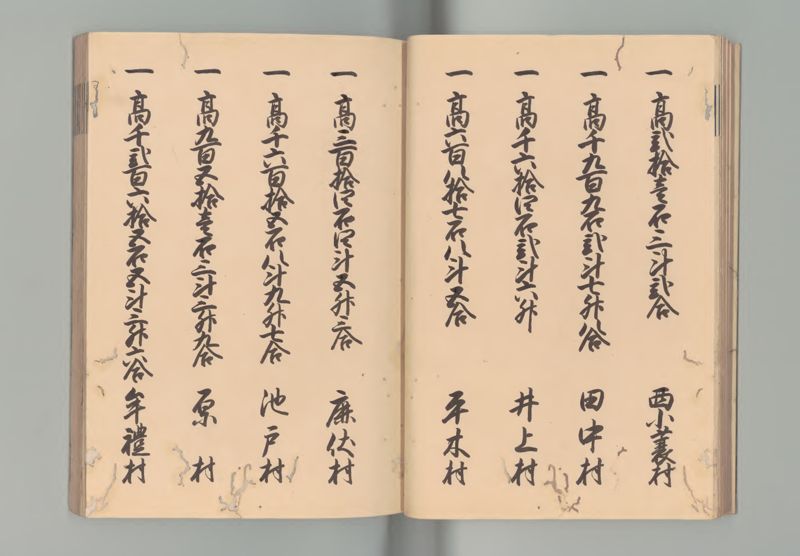 一 高弐拾壱石二斗弐合 西小蓑村
一 高千九百九石弐斗七升八合 田中村
一 高千六拾四石弐斗六升 井上村
一 高六百八拾七石八斗五合 平木村
一 高三百拾四石四斗五升二合 鹿伏村
一 高千六百拾五石八斗九升七合 池戸村
一 高九百五拾壱石三斗三升九合 原村
一 高千弐百六拾五石五斗三升六合 牟禮村